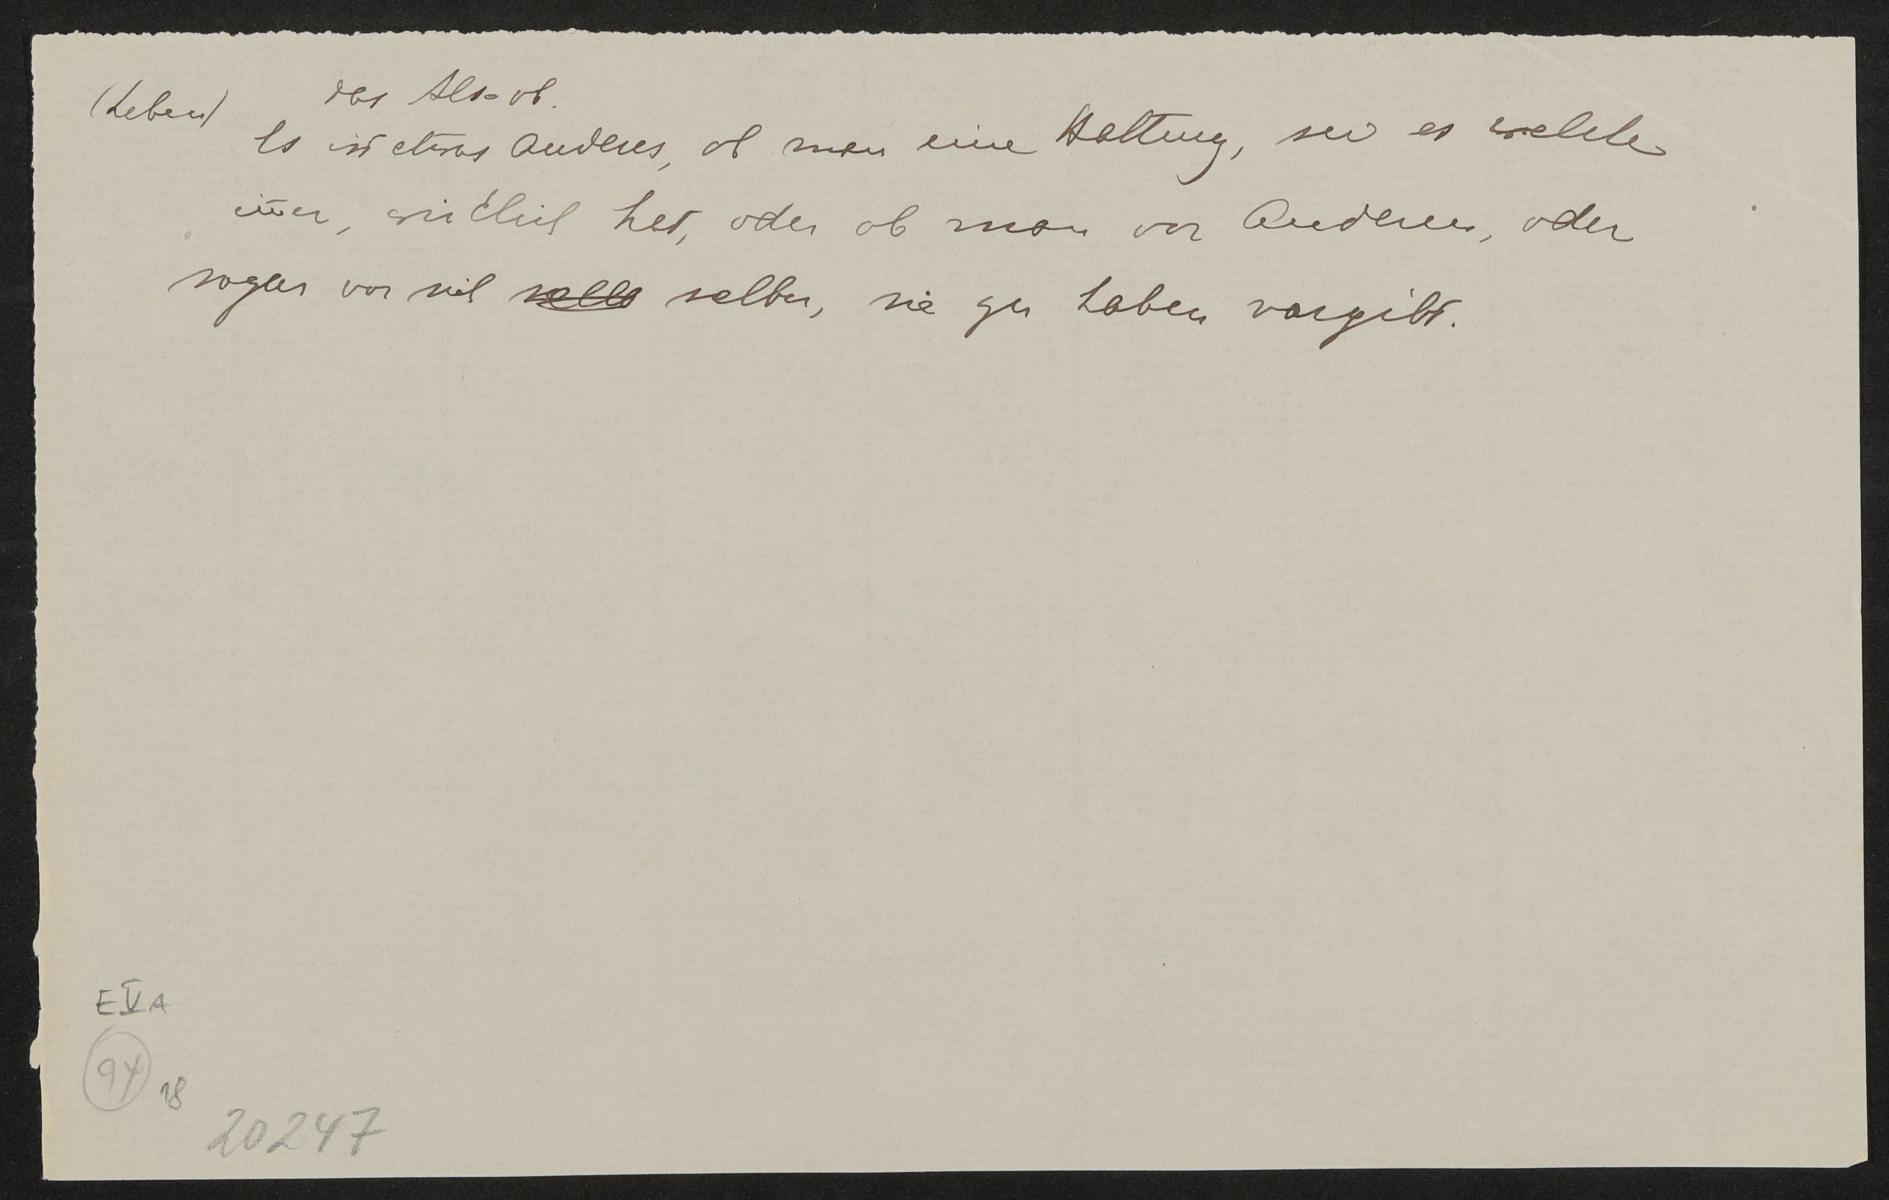 (Leben)
das Als-ob.
Es ist etwas Anderes, ob man eine Haltung, sei es welche
im̅er, wirklich hat, oder ob man vor Anderen, oder
sogar vor sich selbst selber, sie zu haben vorgibt.
E V A
94
18
20247